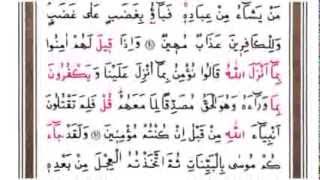 مَنْ يَشَاءُ مِنْ عِبَادِهِ فَبَاؤُ بِغَضَبٍ عَلَى غَضَبٍ
وَلِلْكَافِرِينَ عَذَابٌ مُهِينٌ ۝ وَإِذَا قِيلَ لَهُمْ اٰمِنُوا
بِمَا أَنْزَلَ اللّٰهُ قَالُوا نُؤْمِنُ بِمَا أُنْزِلَ عَلَيْنَا وَيَكْفُرُونَ
بِمَا وَرَاءَهُ وَهُوَ الْحَقُّ مُصَدِّقًا لِمَا مَعَهُمْ قُلْ فَلِمَ تَقْتُلُونَ
أَنْبِيَاءَ اللّٰهِ مِنْ قَبْلُ إِنْ كُنْتُمْ مُؤْمِنِينَ ۝ وَلَقَدْ جَاءَ
كُمْ مُوسٰى بِالْبَيِّنَاتِ ثُمَّ اتَّخَذْتُمُ الْعِجْلَ مِنْ بَعْدِهِ